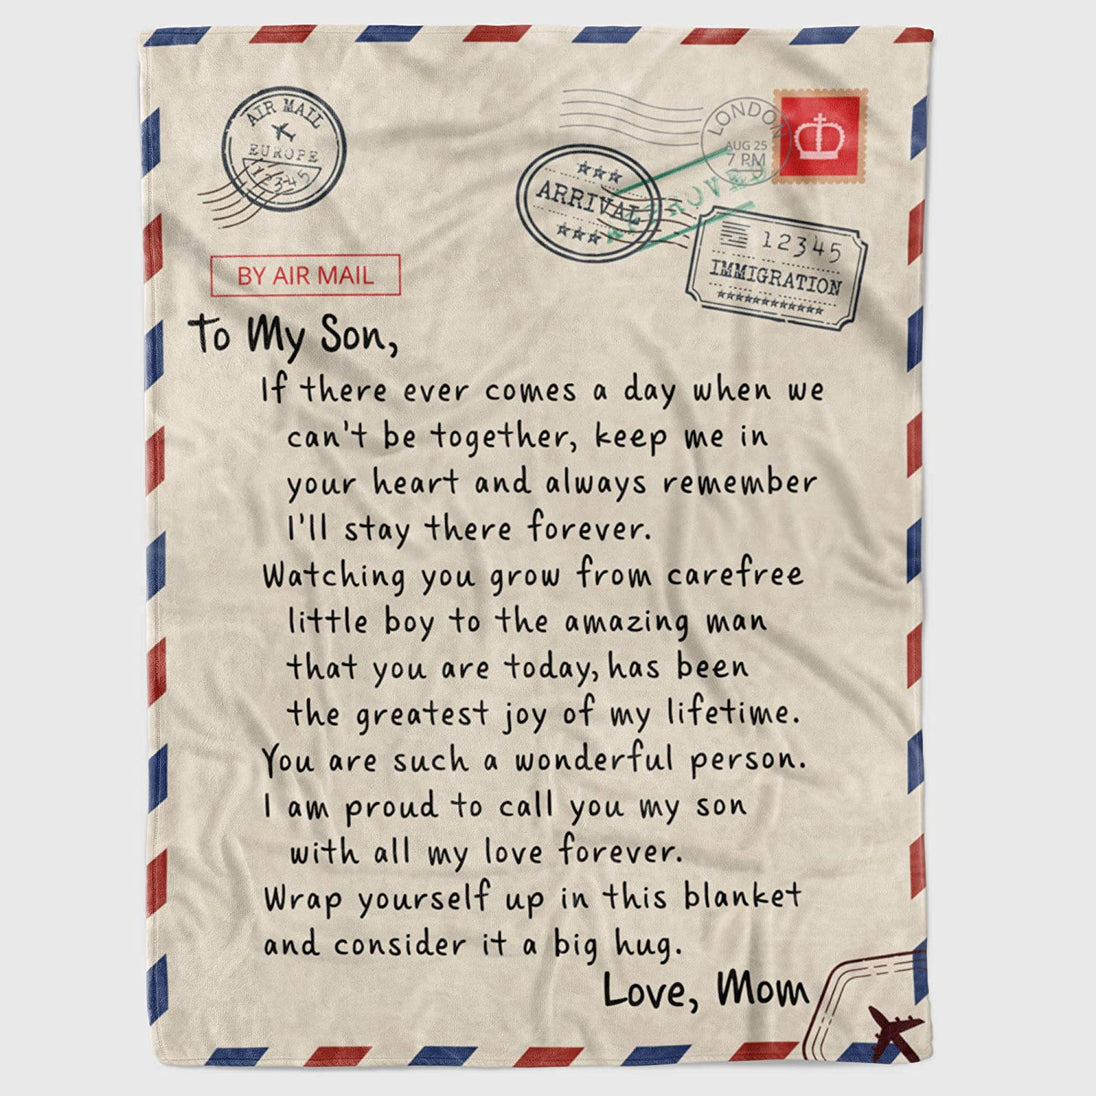 AIR MAIL
EUROPE
12345
LONDON
AUG 25
7 PM
ARRIVAL
12345
IMMIGRATION
BY AIR MAIL
To My Son,
If there ever comes a day when we
can't be together, keep me in
your heart and always remember
I'll stay there forever.
Watching you grow from carefree
little boy to the amazing man
that you are today, has been
the greatest joy of my lifetime.
You are such a wonderful person.
I am proud to call you my son
with all my love forever.
Wrap yourself up in this blanket
and consider it a big hug.
Love, Mom